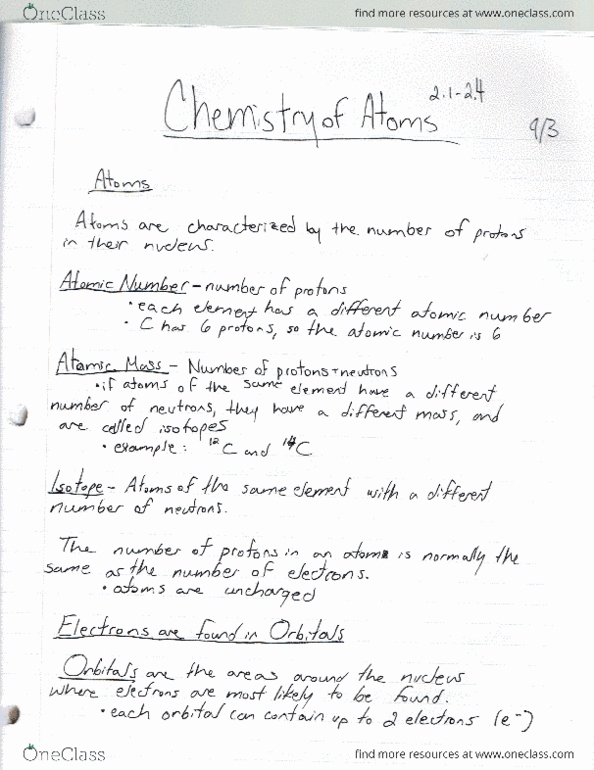 OneClass find more resources at www.oneclass.com
2.1-2.4
Chemistry of Atoms 9/3
Atoms
Atoms are characterized by the number of protons
in their nucleus.
Atomic Number - number of protons
• each element has a different atomic number
• C has 6 protons, so the atomic number is 6
Atomic Mass - Number of protons + neutrons
• if atoms of the same element have a different
number of neutrons, they have a different mass, and
are called isotopes
• example: ¹²C and ¹⁴C
Isotope - Atoms of the same element with a different
number of neutrons.
The number of protons in an atom is normally the
same as the number of electrons.
• atoms are uncharged
Electrons are found in Orbitals
Orbitals are the areas around the nucleus
where electrons are most likely to be found.
• each orbital can contain up to 2 electrons (e⁻)
OneClass find more resources at www.oneclass.com